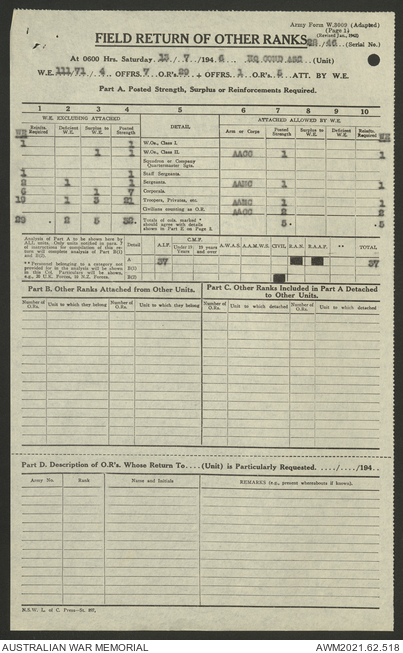 Army Form W.3009 (Adapted)
(Page 1)
(Revised Jan., 1942)
FIELD RETURN OF OTHER RANKS 28/46 (Serial No.)
At 0600 Hrs. Saturday 13/7/1946 HQ COMD ASC (Unit)
W.E. 111/71/4 OFFRS. 7 O.R's. 29 + OFFRS. 1 O.R's. 5 ATT. BY W.E.
Part A. Posted Strength, Surplus or Reinforcements Required.
1 2 3 4 5 6 7 8 9 10
W.E. EXCLUDING ATTACHED. ATTACHED ALLOWED BY W.E.
Reinfts. Required Deficient W.E. Surplus to W.E. Posted Strength DETAIL Arm or Corps Posted Strength Surplus to W.E. Deficient W.E. Reinfts. Required
1 1 W.Os., Class I.
1 1 W.Os., Class II. AAOC 1 1
Squadron or Company Quartermaster Sgts.
1 1 Staff Sergeants.
2 1 1 Sergeants. AAMC 1 1
6 1 7 Corporals.
19 1 3 21 Troopers, Privates, etc. AAMC 1 1
Civilians counting as O.R. AAOC 2 2
29 2 5 32 Totals of cols. marked * should agree with details shown to Part E on Page 3. 5 5
Analysis of Part A to be shown here by ALL units. Only units notified in para. 7 of instructions for compilation of this return will complete analysis of Part B(1) and B(2).
** Personnel belonging to a category not provided for in the analysis will be shown in this Col. Particulars will be shown, e.g., 20 U.K. Forces, 10 N.Z. Forces.
Detail A.I.F. C.M.F. Under 19 Years 19 years and over A.W.A.S. A.A.M.W.S. CIVIL R.A.N. R.A.A.F. ** TOTAL
A 37 37
B(1)
B(2)
Part B. Other Ranks Attached from Other Units.
Part C. Other Ranks Included in Part A Detached to Other Units.
Number of O.Rs. Unit to which they belong Number of O.Rs. Unit to which they belong Number of O.Rs. Unit to which detached Number of O.Rs. Unit to which detached
Part D. Description of O.R's. Whose Return To .... (Unit) is Particularly Requested. ..../..../194..
Army No. Rank Name and Initials REMARKS (e.g., present whereabouts if known).
AUSTRALIAN WAR MEMORIAL AWM2021.62.518